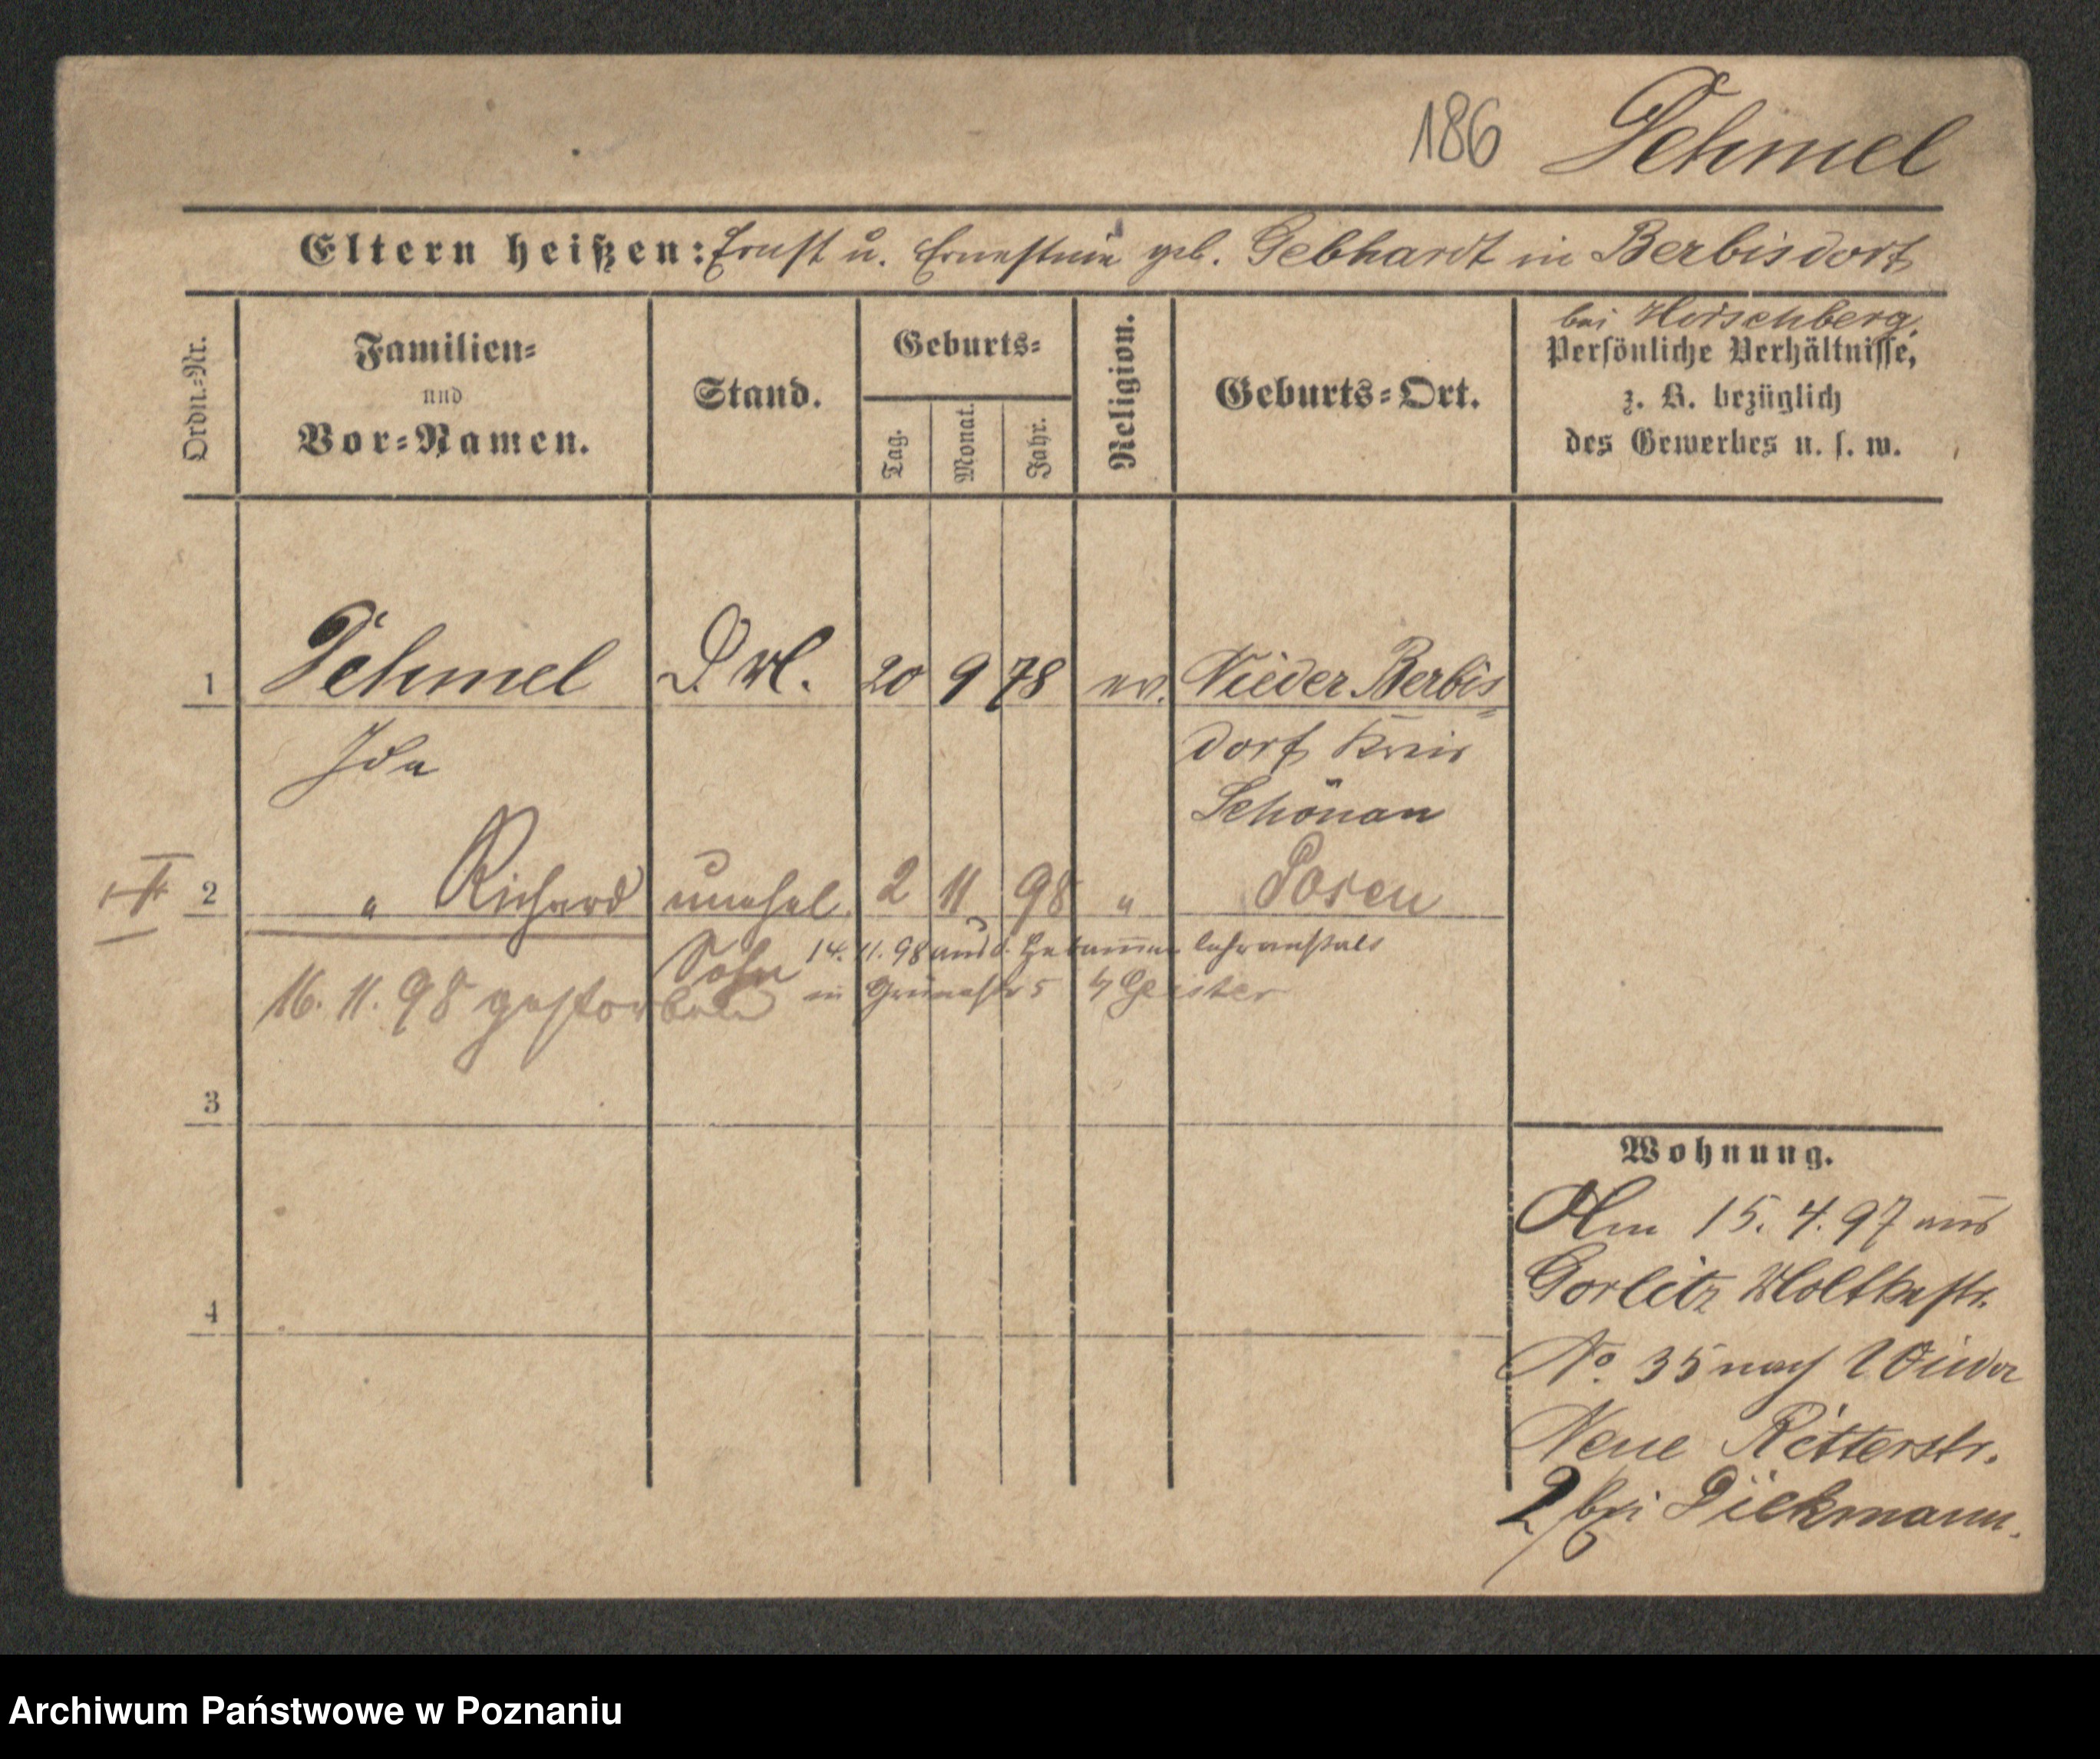 186 Dehmel
Eltern heißen: Ernst u. Ernestine geb. Gebhardt in Berbisdorf
bei Hirschberg.
Ordn.-Nr.
Familien-
und
Vor-Namen.
Stand.
Geburts-
Tag.
Monat.
Jahr.
Religion.
Geburts-Ort.
Persönliche Verhältnisse,
z. B. bezüglich
des Gewerbes u. s. w.
1 Dehmel 20 9 78 ev. Nieder Berbis
Ida dorf Kreis
Schönau
2 " Richard unehel. 2 11 98 " Posen
Sohn 14. 11. 98 aus d. Hebammen lehranstalt
16. 11. 98 gestorben in Grünestr 5
3
4
Wohnung.
Am 15. 4. 97 aus
Görlitz Moltkestr.
No. 35 nach
Neue Ritterstr.
2 bei Dieckmann.
Archiwum Państwowe w Poznaniu